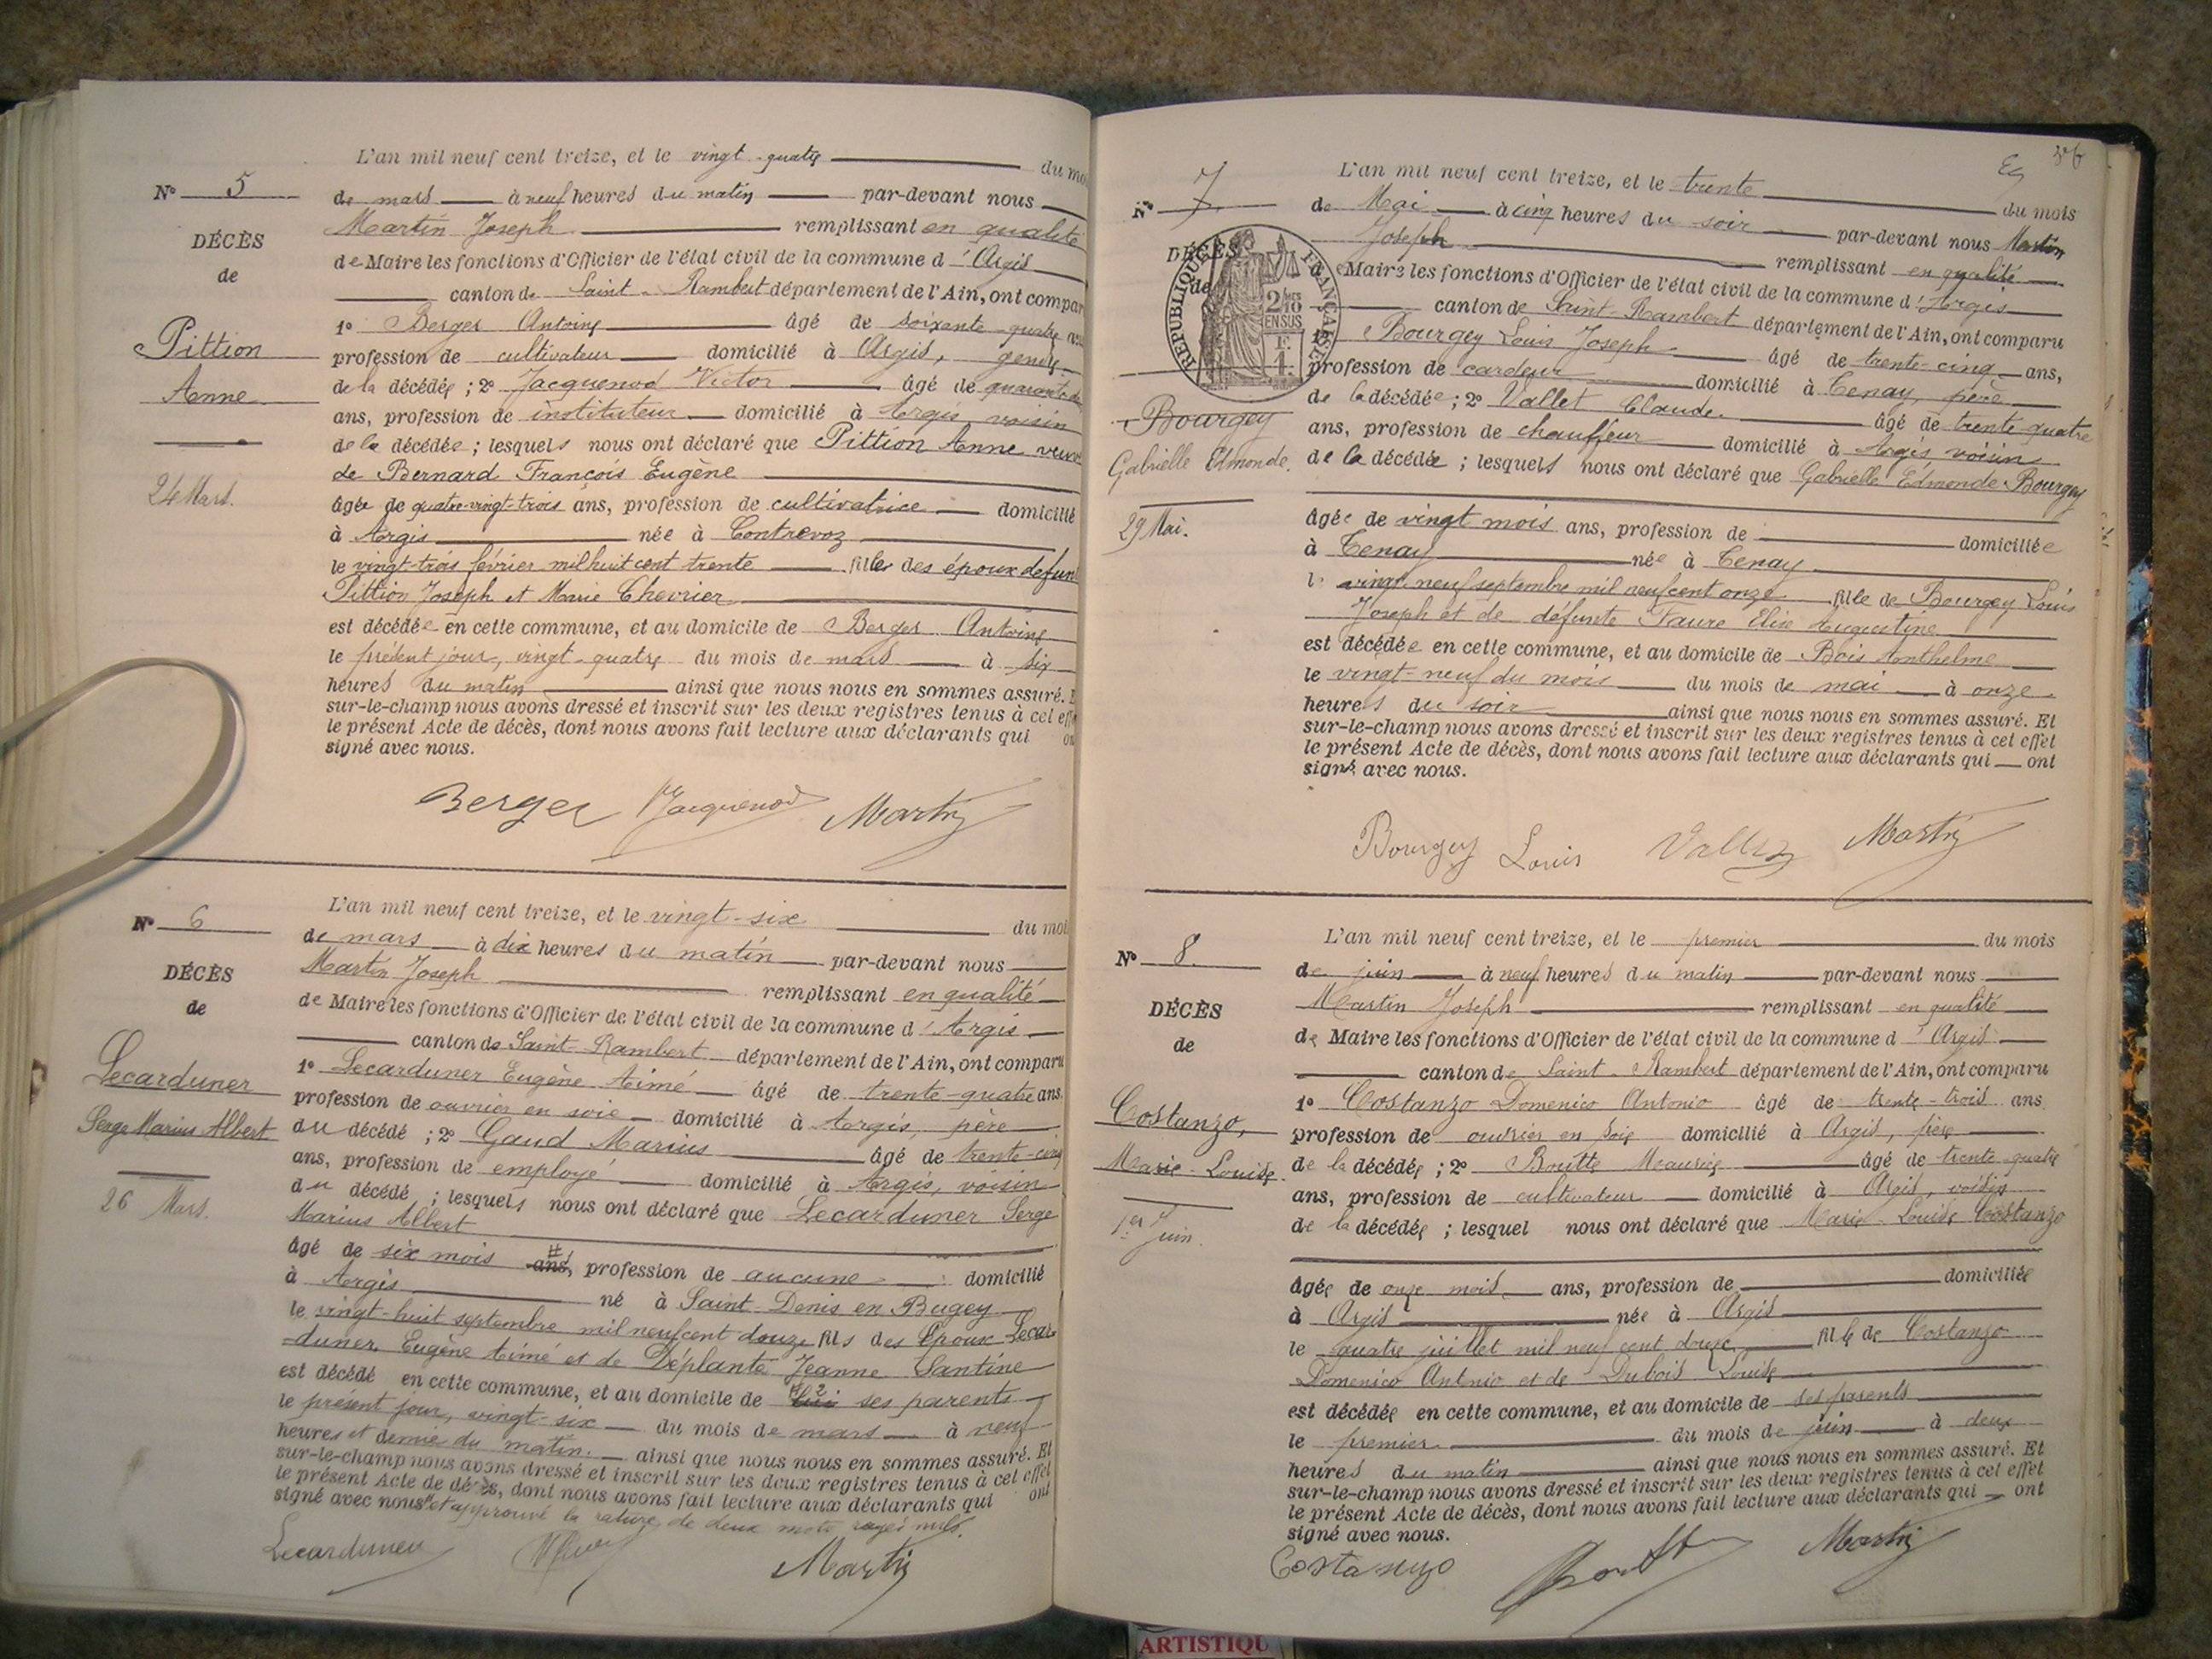 L'an mil neuf cent treize, et le vingt-quatre du mo
N° 5
de mars à neuf heures du matin par-devant nous
Martin Joseph remplissant en qualité
DÉCÈS
de Maire les fonctions d'Officier de l'état civil de la commune d'Argis
de
canton de Saint-Rambert département de l'Ain, ont compar
1° Berger Antoine âgé de soixante-quatre ans
Pittion
profession de cultivateur domicilié à Argis, gendre
Anne
de la décédée ; 2° Jacquenod Victor âgé de
ans, profession de instituteur domicilié à Argis voisin
de la décédée ; lesquels nous ont déclaré que Pittion Anne veuve
de Bernard François Eugène
24 Mars.
âgée de quatre-vingt-trois ans, profession de cultivatrice domicilié
à Argis née à Contrevoz
le vingt-trois février mil huit cent trente fille des époux defun
Pittion Joseph et Marie Chevrier
est décédée en cette commune, et au domicile de Berger Antoine
le présent jour, vingt-quatre du mois de mars à six
heures du matin ainsi que nous nous en sommes assuré. E
sur-le-champ nous avons dressé et inscrit sur les deux registres tenus à cet effe
le présent Acte de décès, dont nous avons fait lecture aux déclarants qui on
signé avec nous.
Berger Jacquenod Martin
L'an mil neuf cent treize, et le vingt-six du moi
N° 6
de mars à dix heures du matin par-devant nous
Martin Joseph remplissant en qualité
DÉCÈS
de Maire les fonctions d'Officier de l'état civil de la commune d'Argis
de
canton de Saint-Rambert département de l'Ain, ont comparu
1° Lecarduner Eugène Aimé âgé de trente-quatre ans.
Lecarduner
profession de ouvrier en soie domicilié à Argis, père
Serge Marius Albert
du décédé ; 2° Gaud Marius âgé de trente-cinq
ans, profession de employé domicilié à Argis, voisin
26 Mars.
du décédé ; lesquels nous ont déclaré que Lecarduner Serge
Marius Albert
âgé de six mois ans, profession de aucune domicilié
à Argis né à Saint-Denis en Bugey
le vingt-huit septembre mil neuf cent douze fils des Epoux Lecar-
-duner Eugène Aimé et de Déplante Jeanne Santine
est décédé en cette commune, et au domicile de lui ses parents
le présent jour, vingt-six du mois de mars à neuf
heures et demie du matin. ainsi que nous nous en sommes assuré. Et
sur-le-champ nous avons dressé et inscrit sur les deux registres tenus à cet effet
le présent Acte de décès, dont nous avons fait lecture aux déclarants qui ont
signé avec nous et approuvé la rature de deux mots rayés nuls.
Lecarduner Martin
56
L'an mil neuf cent treize, et le trente du mois
N° 7
de Mai à cinq heures du soir par-devant nous Martin
Joseph remplissant en qualité
DÉCÈS
de Maire les fonctions d'Officier de l'état civil de la commune d'Argis
de
RÉPUBLIQUE FRANÇAISE
2/10 EN SUS
F. 1.
canton de Saint-Rambert département de l'Ain, ont comparu
1° Bourgey Louis Joseph âgé de trente-cinq ans,
profession de cardeur domicilié à Tenay, père
de la décédée ; 2° Vallet Claude âgé de trente-quatre
Bourgey
ans, profession de chauffeur domicilié à Argis voisin
Gabrielle Edmonde.
de la décédée ; lesquels nous ont déclaré que Gabrielle Edmonde Bourgey
29 Mai.
âgée de vingt mois ans, profession de domiciliée
à Tenay née à Tenay
le vingt-neuf septembre mil neuf cent onze fille de Bourgey Louis
Joseph et de défunte Faure Elise Augustine
est décédée en cette commune, et au domicile de Bois Anthelme
le vingt-neuf du mois du mois de mai à onze
heures du soir ainsi que nous nous en sommes assuré. Et
sur-le-champ nous avons dressé et inscrit sur les deux registres tenus à cet effet
le présent Acte de décès, dont nous avons fait lecture aux déclarants qui ont
signé avec nous.
Bourgey Louis Vallet Martin
L'an mil neuf cent treize, et le premier du mois
N° 8.
de juin à neuf heures du matin par-devant nous
Martin Joseph remplissant en qualité
DÉCÈS
de Maire les fonctions d'Officier de l'état civil de la commune d'Argis
de
canton de Saint-Rambert département de l'Ain, ont comparu
1° Costanzo Domenico Antonio âgé de trente-trois ans
Costanzo,
profession de ouvrier en soie domicilié à Argis, père
Marie-Louise.
de la décédée ; 2° âgé de trente-quatre
ans, profession de cultivateur domicilié à Argis, voisin
1er Juin.
de la décédée ; lesquel nous ont déclaré que Marie-Louise Costanzo
âgée de onze mois ans, profession de domiciliée
à Argis née à Argis
le quatre juillet mil neuf cent douze fille de Costanzo
Domenico Antonio et de Dubois Louise
est décédée en cette commune, et au domicile de ses parents
le premier du mois de juin à deux
heures du matin ainsi que nous nous en sommes assuré. Et
sur-le-champ nous avons dressé et inscrit sur les deux registres tenus à cet effet
le présent Acte de décès, dont nous avons fait lecture aux déclarants qui ont
signé avec nous.
Costanzo Martin
ARTISTIQU